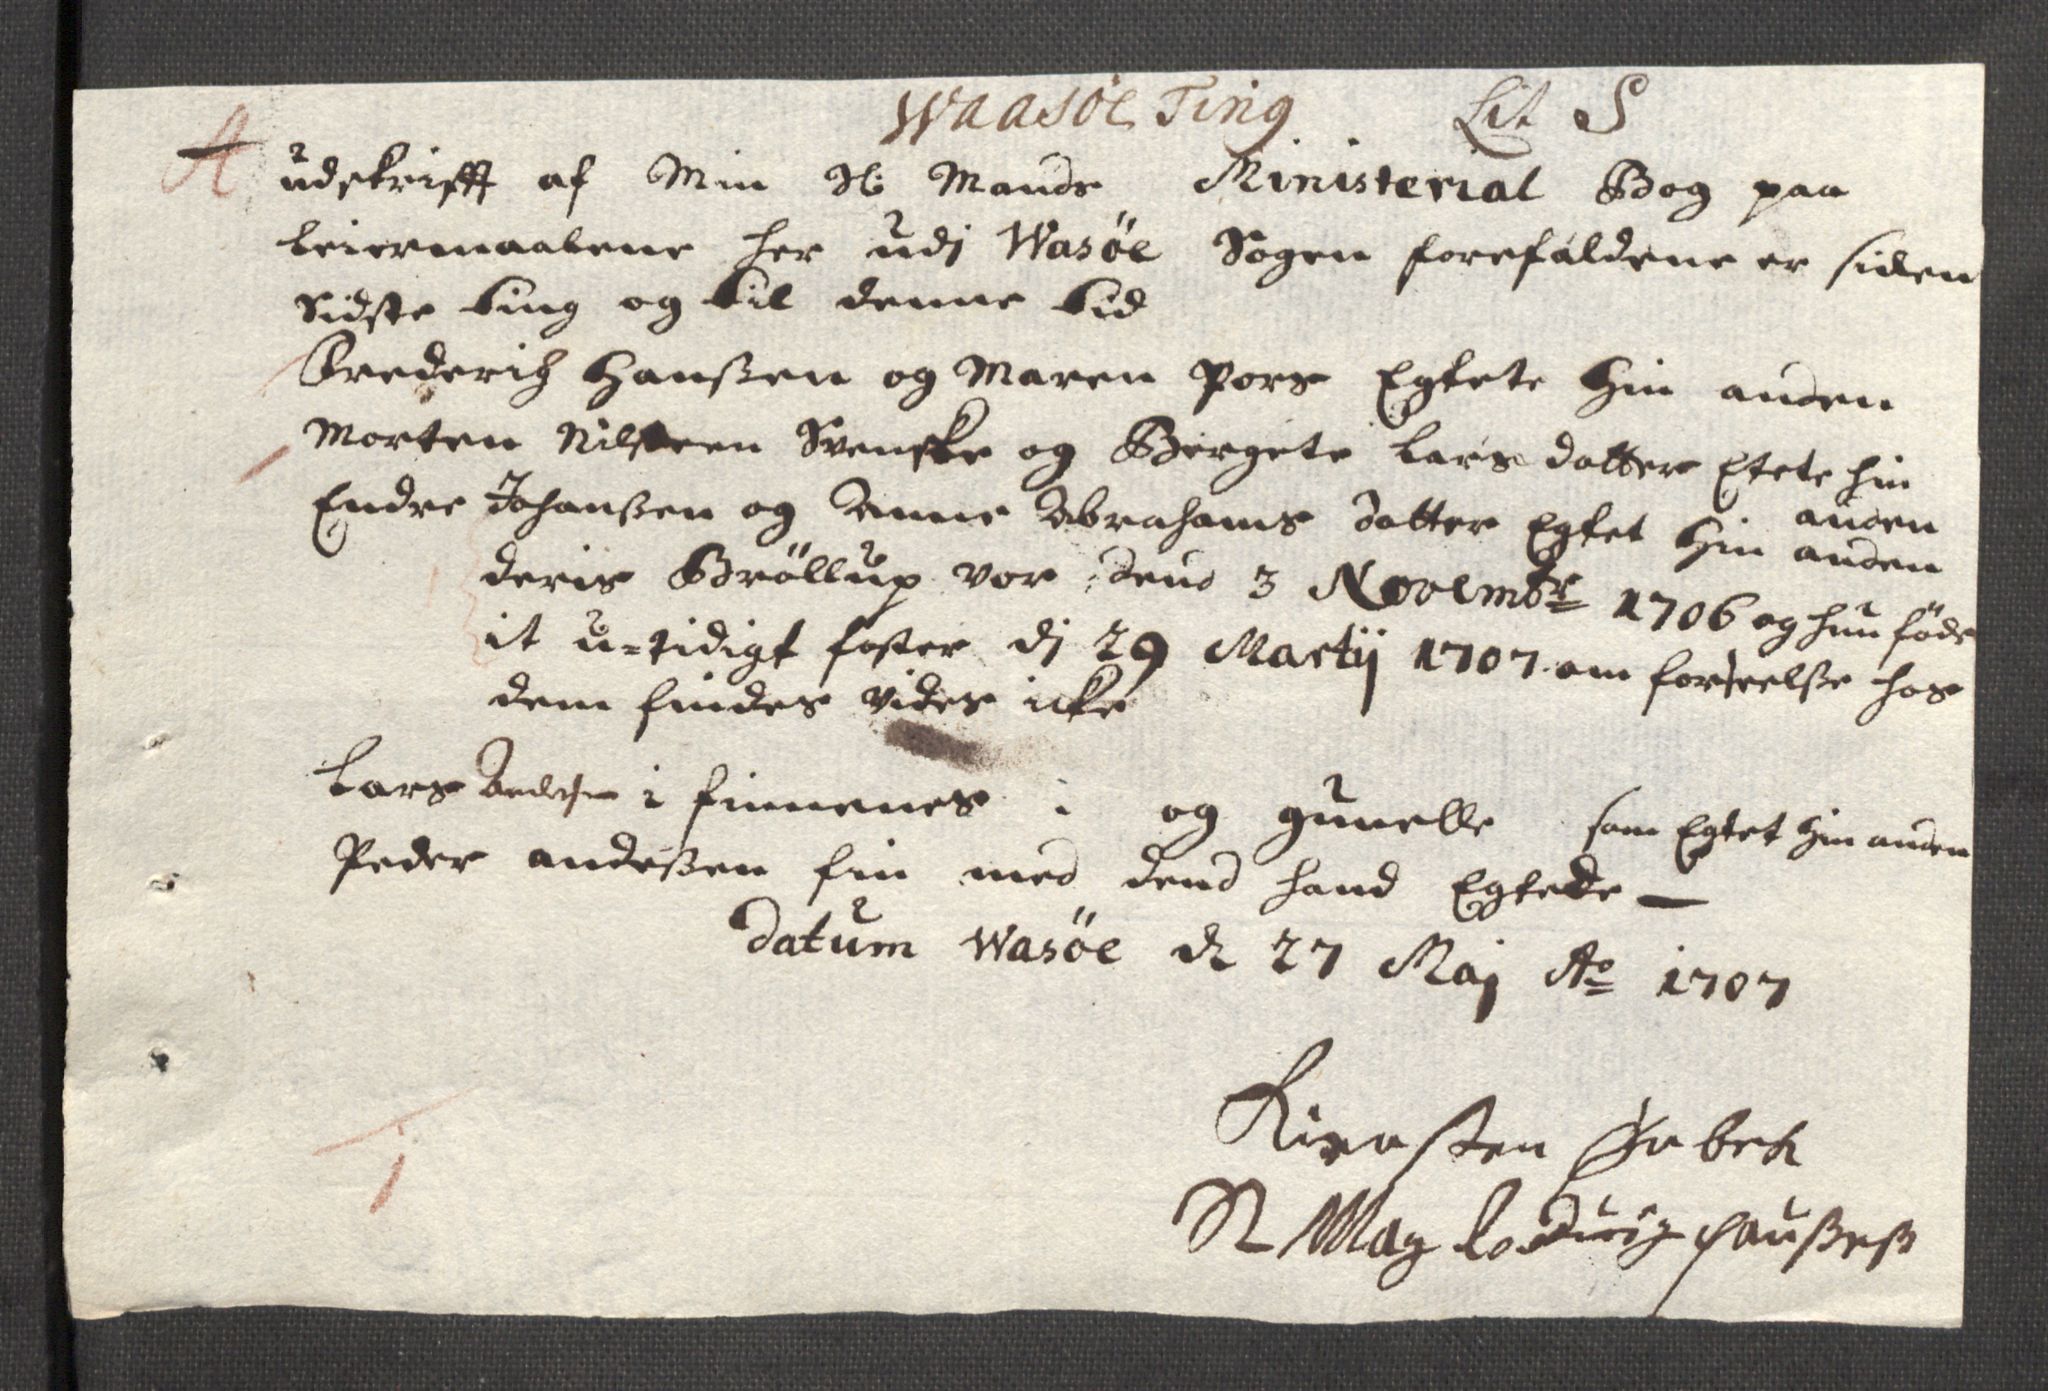 Waasöe Ting Lit S
A
udskrifft af Min Sl: Mands Ministerial Bog paa
leiermaalene her udj Wasöe Sogen forefaldene er siden
Sidste ting og til denne tid
Frederich Hanßen og Maren Pors Egtete Hin anden
Morten Nilsen Svenske og Bergete Lars datter Etete hin
anden
Endre Johanßen og Anne Abrahams datter Egtet Hin anden
deris Bröllup vor dend 3 Novembr 1706 og hun föde
it u=tidigt foster dj 29 Martij 1707 om forseelße hos
dem findes vides icke
Lars i finnenes og gunelle som Egtet Hin anden
Peder andeßen fin med dend hand Egtede
Datum Wasöe d 27 Maj Ao 1707
Kirsten
Sl Mag Lodvig Paußes
1